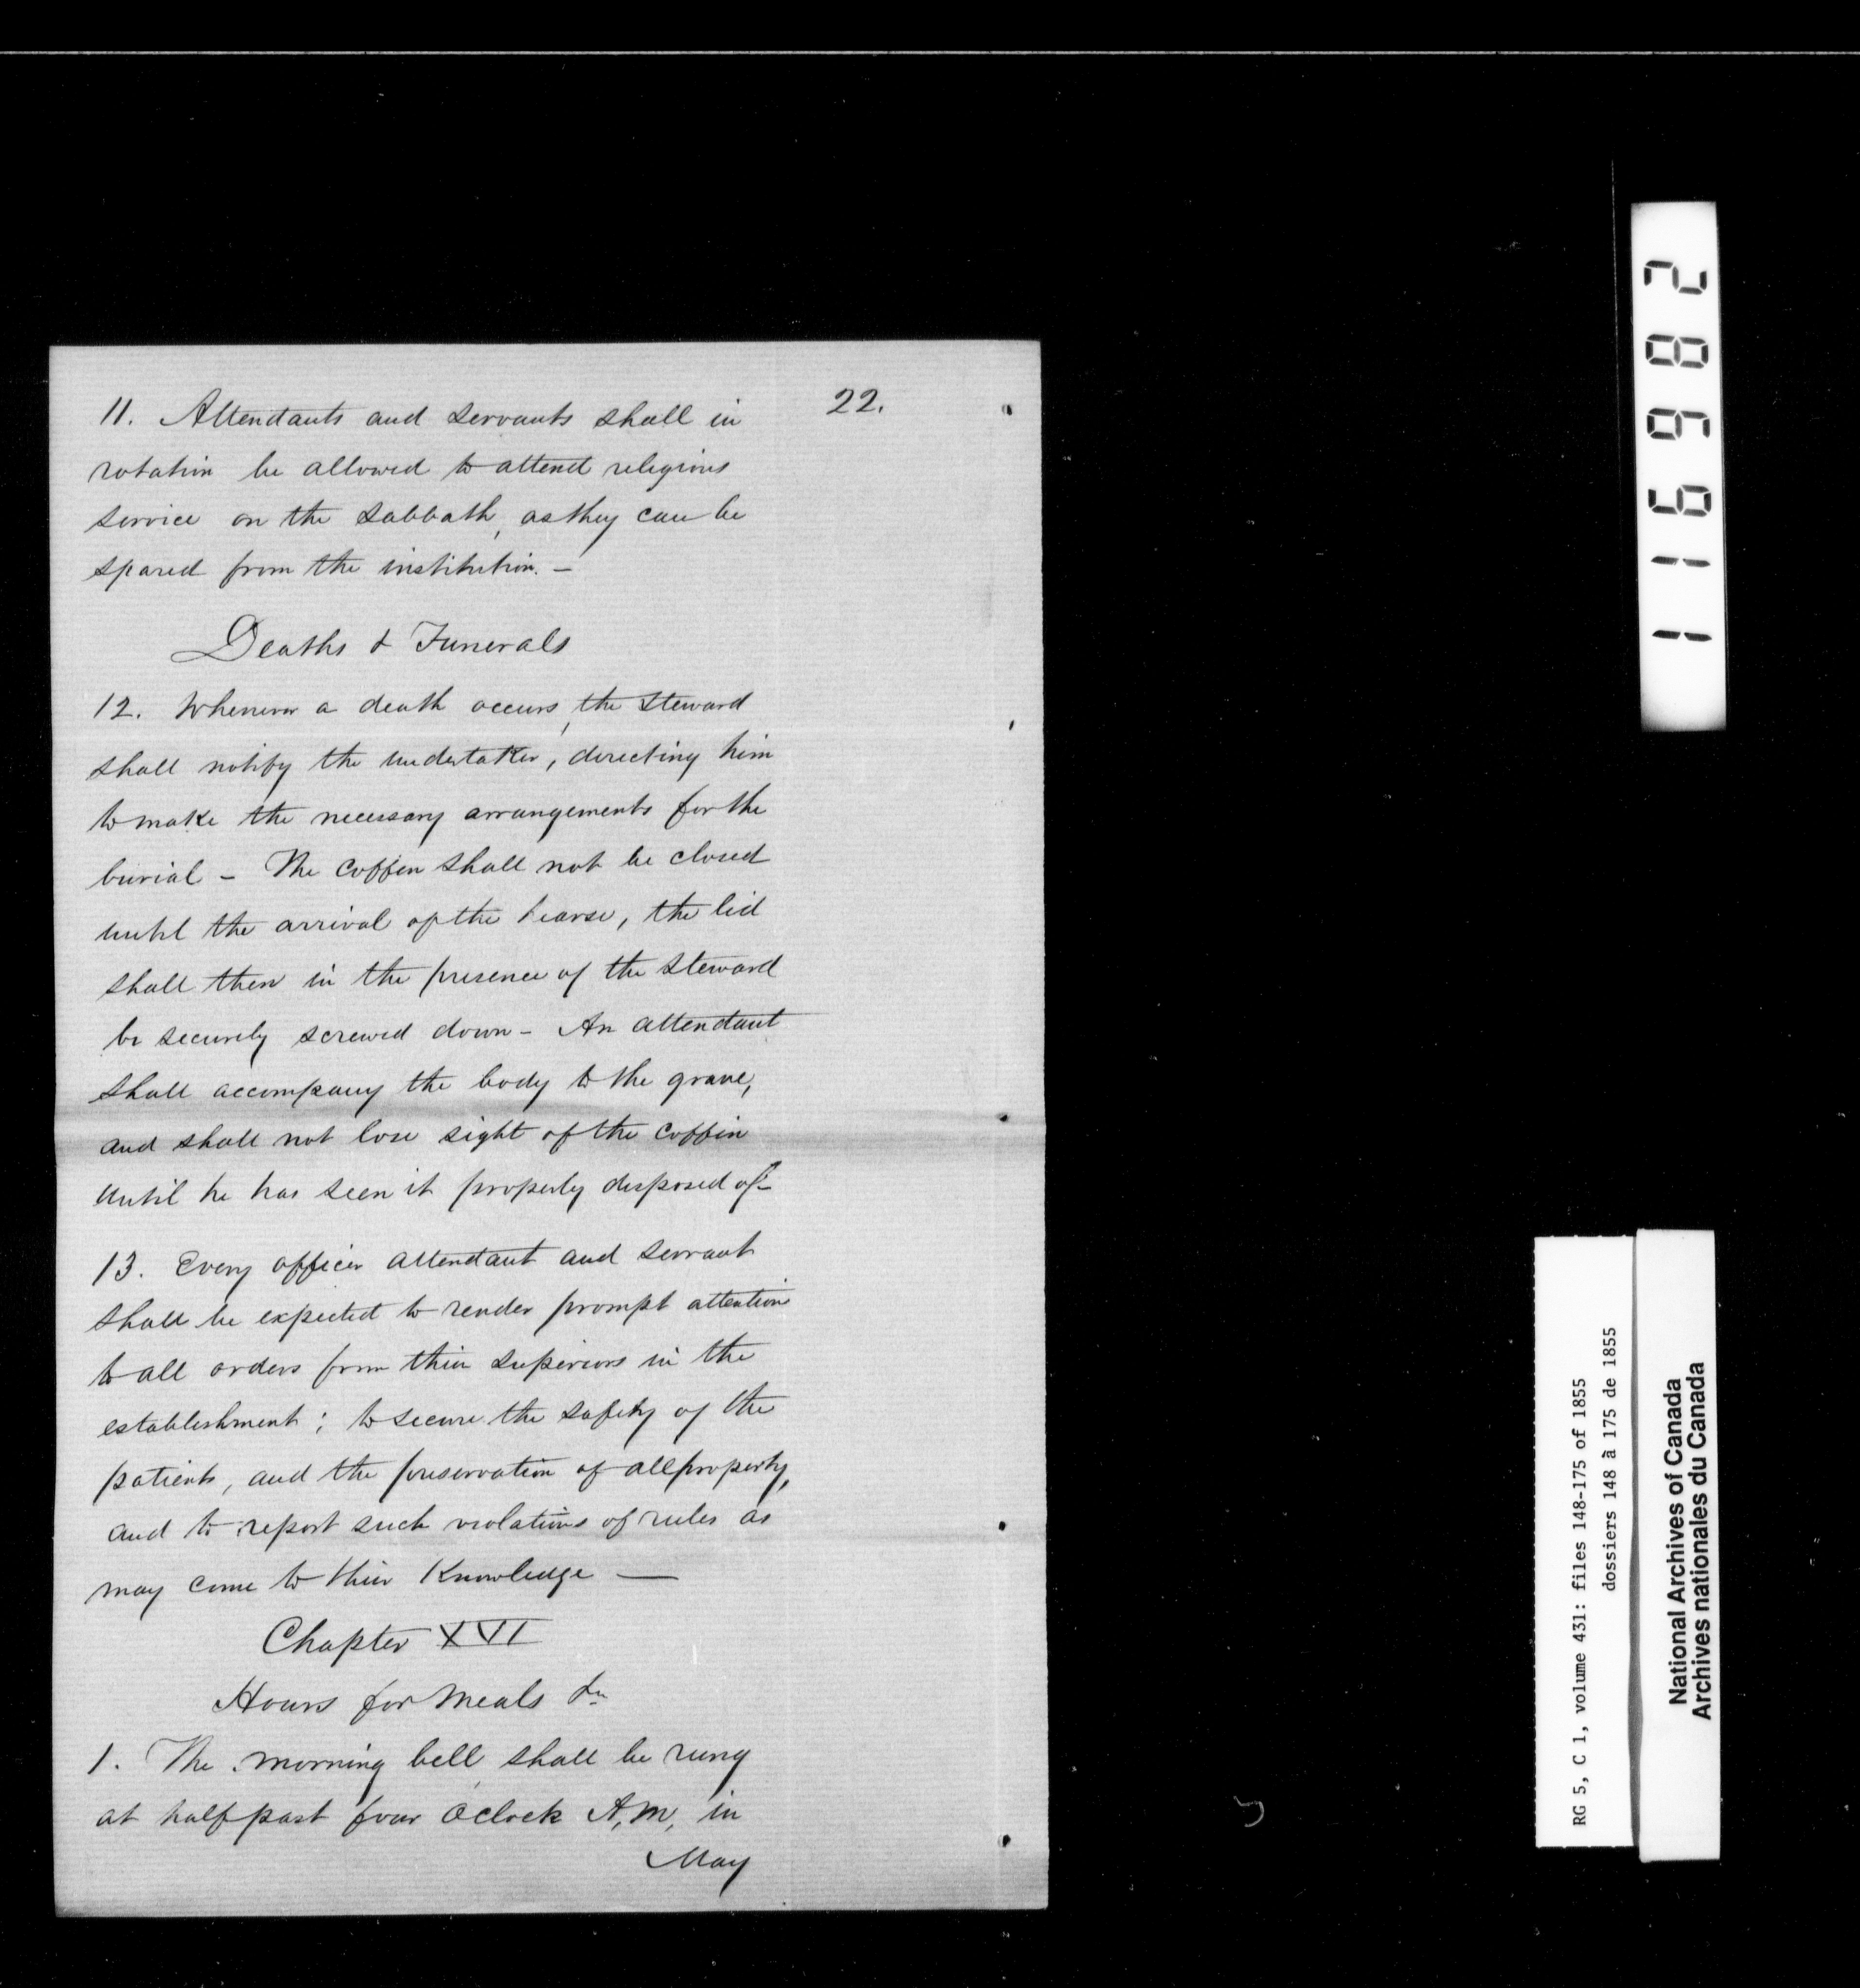 22.
11. Attendants and servants shall in
rotation be allowed to attend religious
service on the Sabbath, as they can be
spared from the institution. —
Deaths & Funerals
12. Whenever a death occurs, the Steward
shall notify the undertaker, directing him
to make the necessary arrangements for the
burial — The coffin shall not be closed
until the arrival of the hearse, the lid
shall then in the presence of the Steward
be securely screwed down — An attendant
shall accompany the body to the grave,
and shall not lose sight of the coffin
until he has seen it properly disposed of—
13. Every officer attendant and servant
shall be expected to render prompt attention
to all orders from their superiors in the
establishment; to secure the safety of the
patients, and the preservation of all property,
and to report such violations of rules as
may come to their Knowledge —
Chapter XVI
Hours for Meals &c
1. The morning bell shall be rung
at half past four Oclock A,M, in
May
116982
RG 5, C 1, volume 431: files 148-175 of 1855
dossiers 148 à 175 de 1855
National Archives of Canada
Archives nationales du Canada